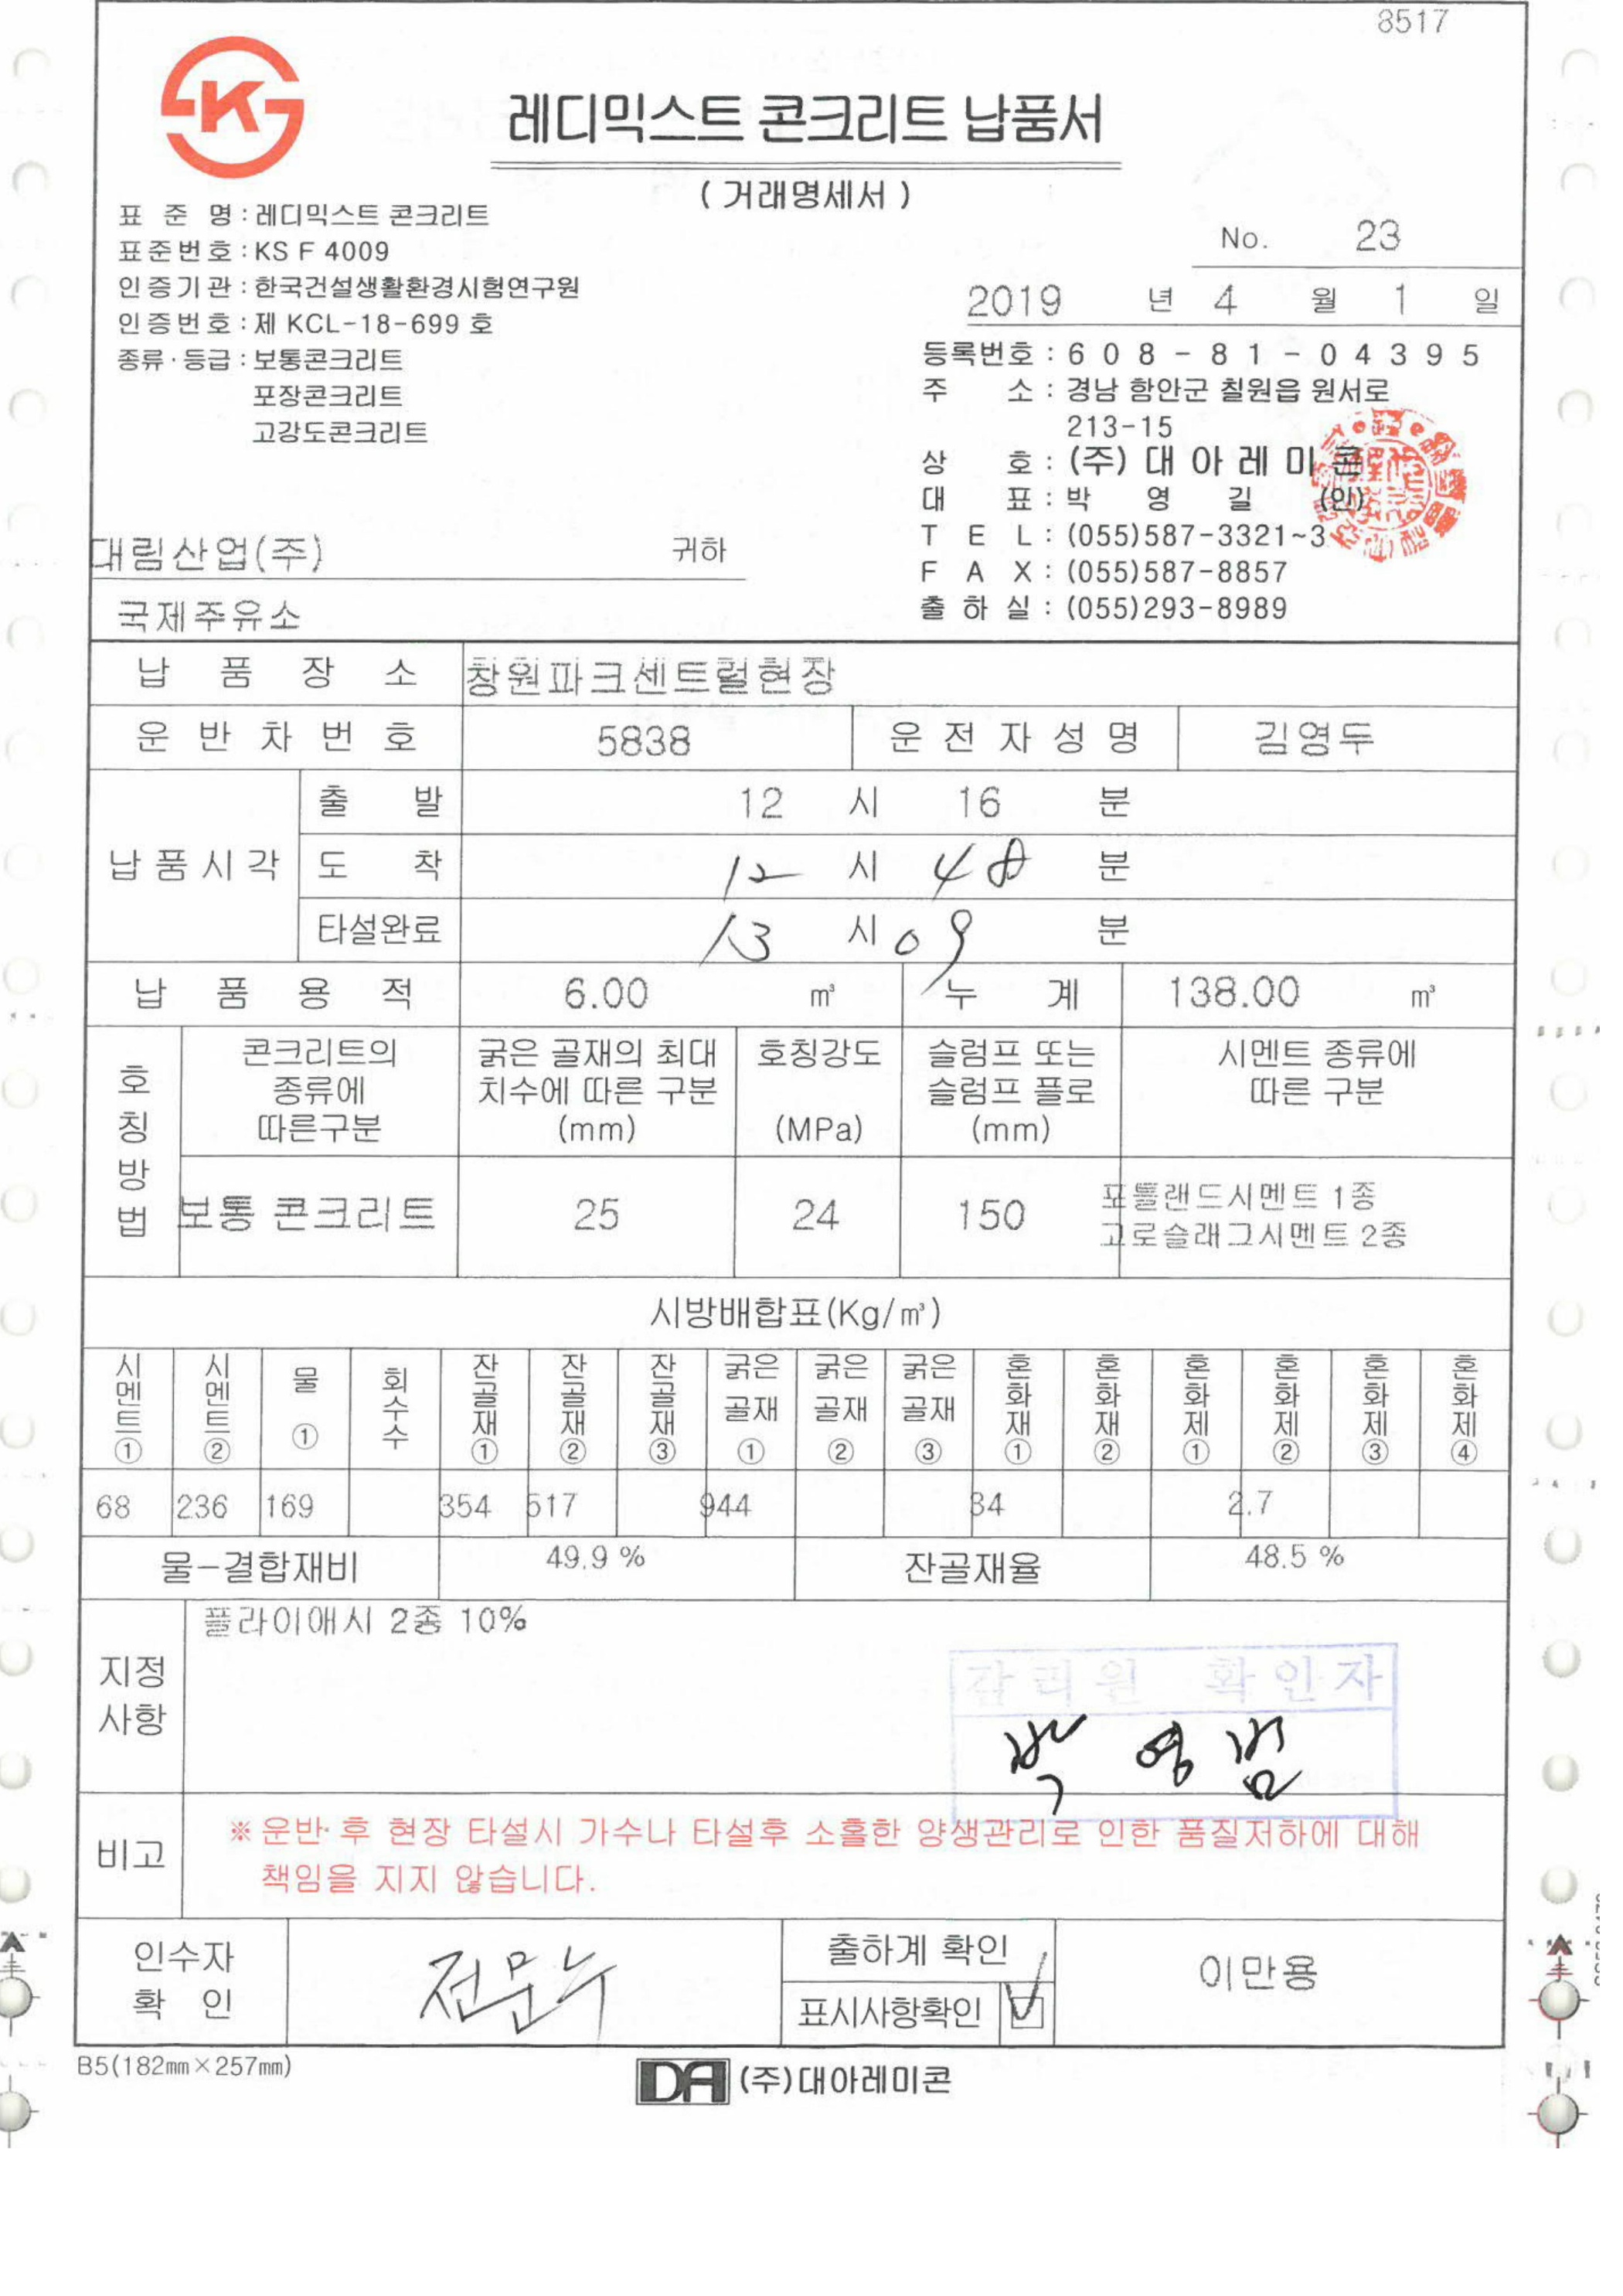 8517
레디믹스트 콘크리트 납품서
(거래명세서)
표 준 명 : 레디믹스트 콘크리트
표준번호 : KS F 4009
인증기관 : 한국건설생활환경시험연구원
인증번호 : 제 KCL-18-699 호
종류·등급 : 보통콘크리트
포장콘크리트
고강도콘크리트
No. 23
2019 년 4 월 1 일
등록번호 : 608-81-04395
주 소 : 경남 함안군 칠원읍 원서로
213-15
상 호 : (주) 대아레미콘
대 표 : 박 영 길 (인)
T E L : (055)587-3321~3
F A X : (055)587-8857
출 하 실 : (055)293-8989
대림산업(주) 귀하
국제주유소
납 품 장 소 창원파크센트럴현장
운 반 차 번 호 5838 운 전 자 성 명 김영두
납품시각
출 발 12 시 16 분
도 착 12 시 48 분
타설완료 13 시 09 분
납 품 용 적 6.00 ㎥ 누 계 138.00 ㎥
호칭방법
콘크리트의 종류에 따른구분
굵은 골재의 최대 치수에 따른 구분 (mm)
호칭강도 (MPa)
슬럼프 또는 슬럼프 플로 (mm)
시멘트 종류에 따른 구분
보통 콘크리트 25 24 150 포틀랜드시멘트 1종
고로슬래그시멘트 2종
시방배합표(Kg/㎥)
시멘트① 시멘트② 물① 회수수 잔골재① 잔골재② 잔골재③ 굵은골재① 굵은골재② 굵은골재③ 혼화재① 혼화재② 혼화제① 혼화제② 혼화제③ 혼화제④
68 236 169 354 517 944 34 2.7
물-결합재비 49.9 % 잔골재율 48.5 %
지정사항
플라이애시 2종 10%
감리원 확인자
박영범
비고
※운반 후 현장 타설시 가수나 타설후 소홀한 양생관리로 인한 품질저하에 대해
책임을 지지 않습니다.
인수자 확 인
출하계 확인 이만용
표시사항확인
B5(182㎜×257㎜)
DA (주)대아레미콘